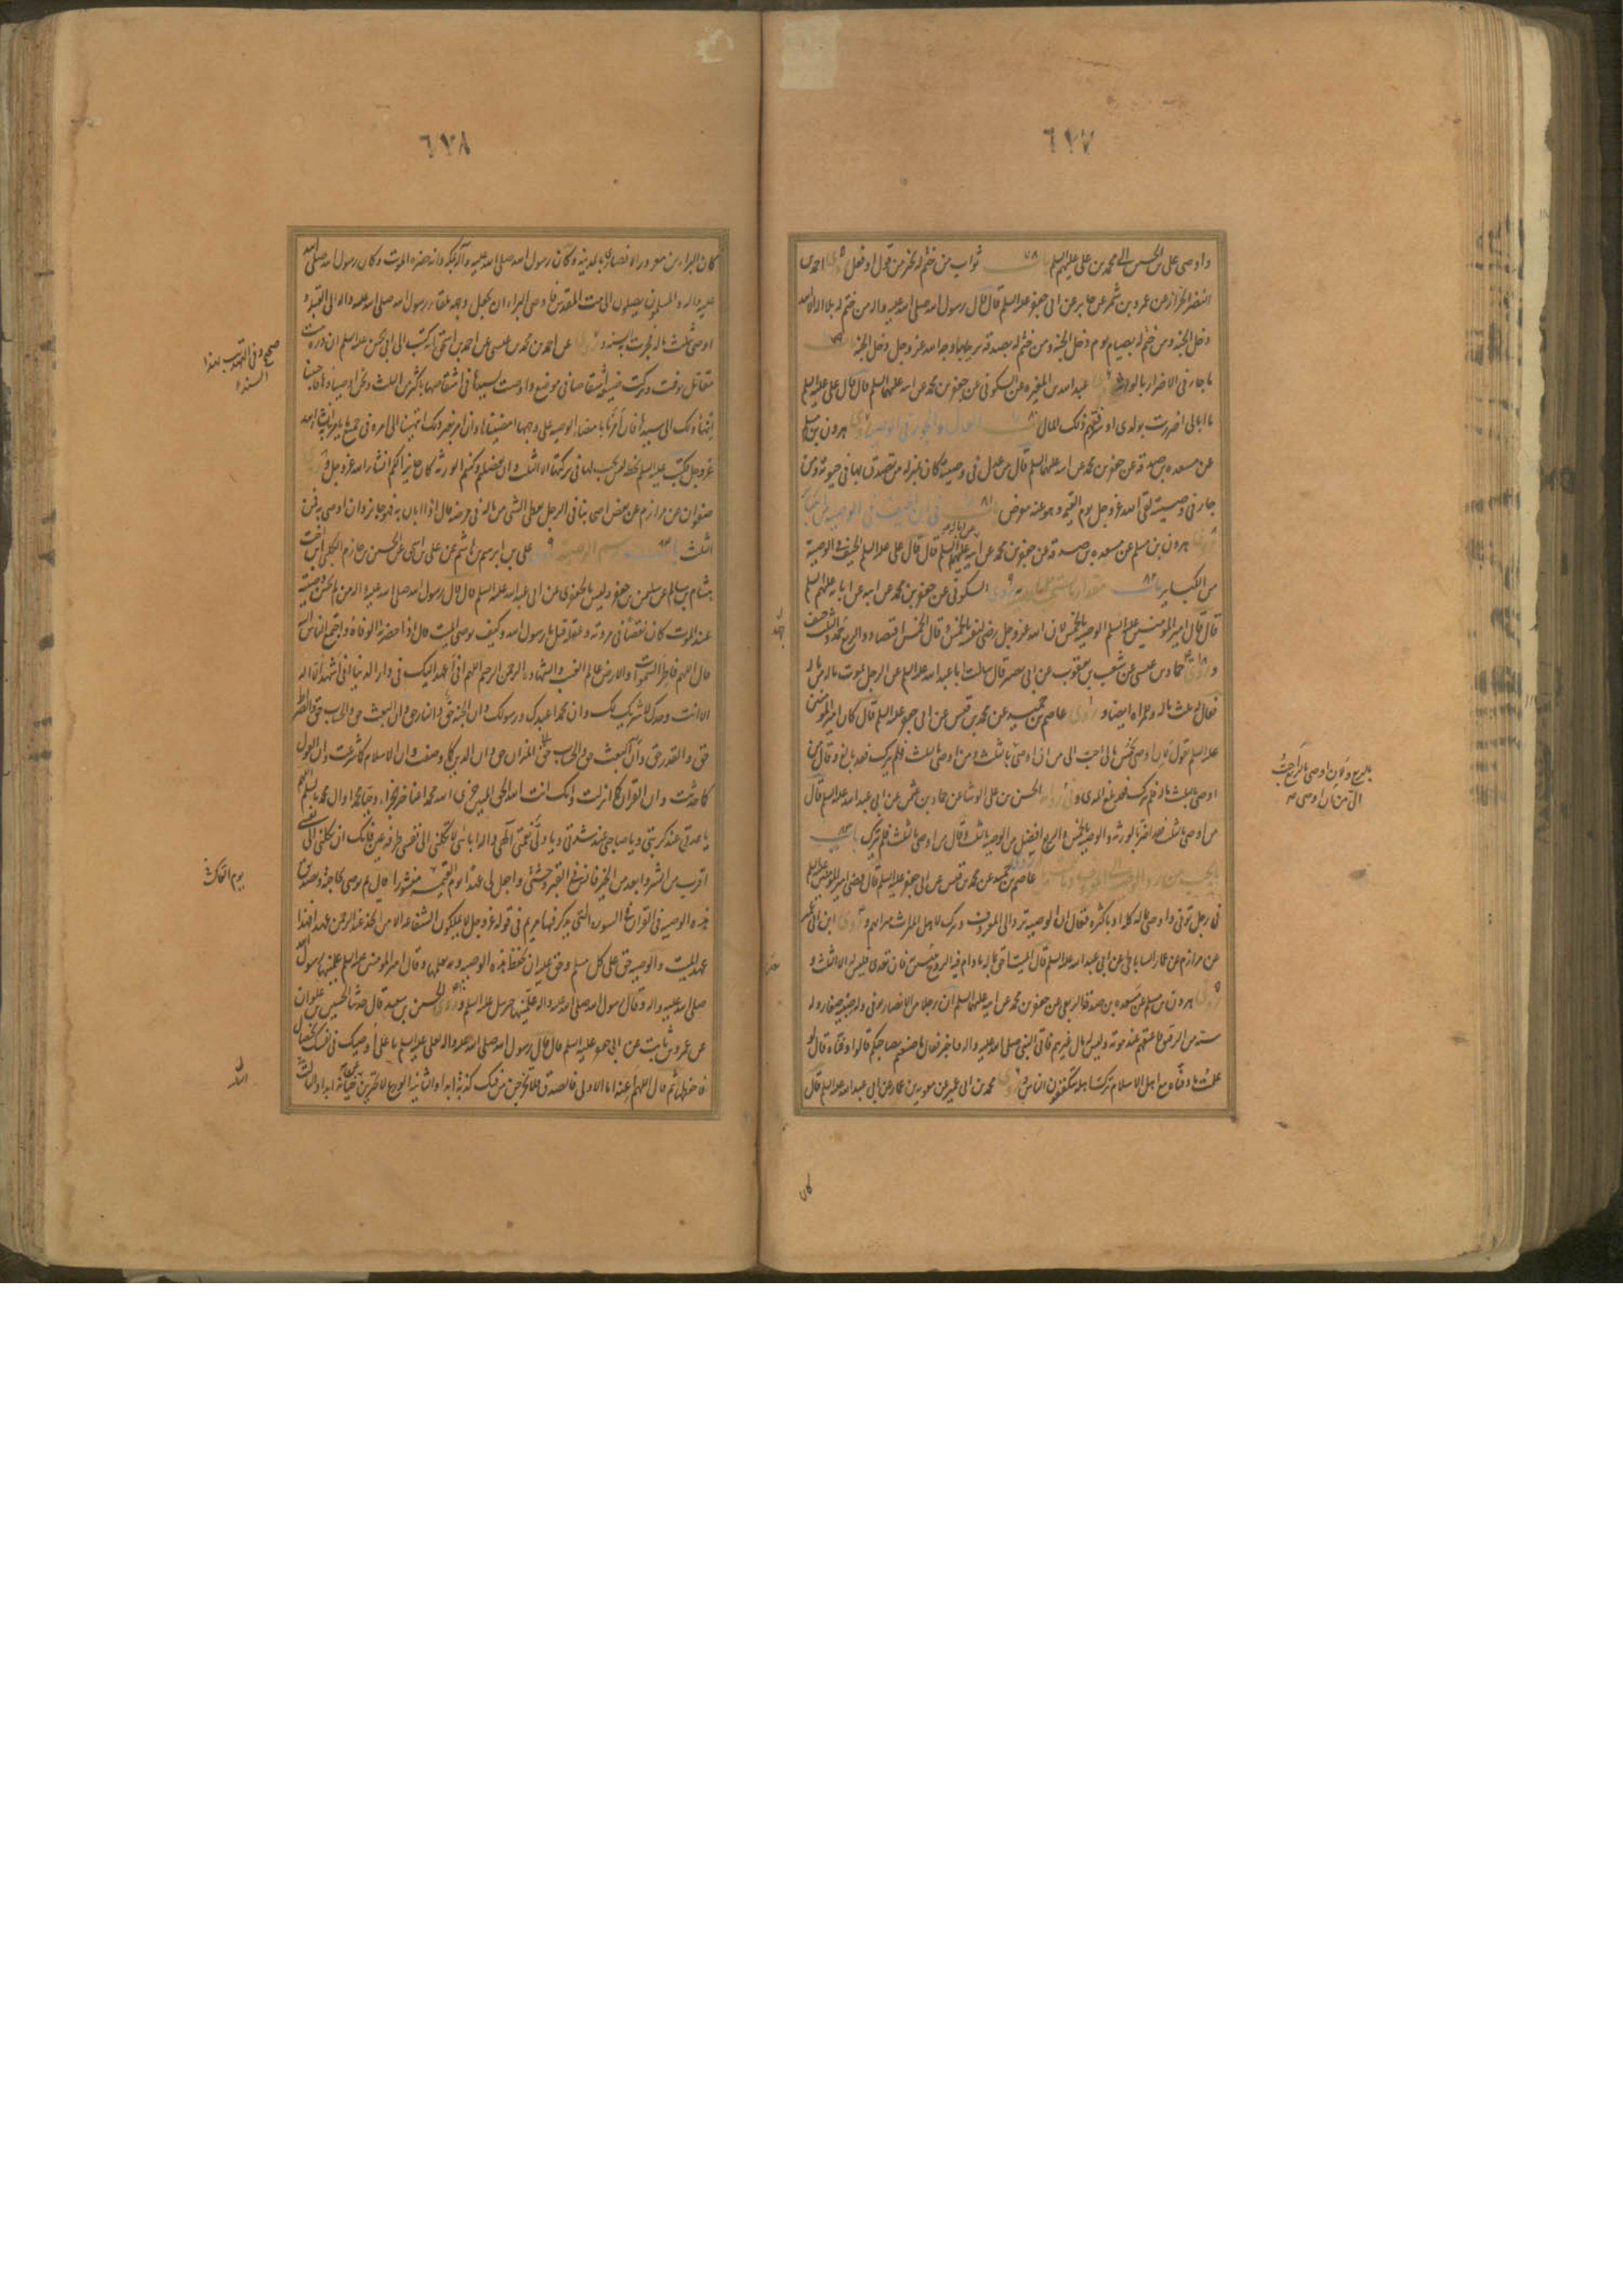 ٦٧٧
واوصى علي بن الحسين الى محمد بن علي عليهم السلم باب ٧٨ ثواب من ختم له بخير من قول او فعل روى احمد بن
النضر الخزاز عن عمرو بن شمر عن جابر عن ابى جعفر عليه السلم قال قال رسول الله صلى الله عليه واله من ختم له بلا اله الا الله
دخل الجنة ومن ختم له بصيام يوم دخل الجنة ومن ختم له بصدقة يريد بها وجه الله عز وجل دخل الجنة
ما جاء فى الاضرار بالورثة روى عبد الله بن المغيرة عن السكونى عن جعفر بن محمد عن ابيه عليهما السلم قال قال على عليه السلم
ما ابالى اضررت بولدى او سرقتهم ذلك المال باب ٨٠ العدل والجور فى الوصية روى هرون بن مسلم
عن مسعدة بن صدقة عن جعفر بن محمد عن ابيه عليهما السلم قال من عدل فى وصيته كان بمنزلة من تصدق بها فى حيوته ومن
جار فى وصيته لقى الله عز وجل يوم القيمة وهو عنه معرض باب ٨١ فى ان الحيف فى الوصية من الكبائر
روى هرون بن مسلم عن مسعدة بن صدقة عن جعفر بن محمد عن ابيه عليهما السلم قال قال على عليه السلم الحيف فى الوصية
من الكباير باب ٨٢ مقدار ما يستحب الوصية به روى السكونى عن جعفر بن محمد عن ابيه عن ابايه عليهم السلم
قال قال امير المؤمنين عليه السلم الوصية بالخمس لان الله عز وجل رضى لنفسه بالخمس وقال الخمس اقتصاد والربع جهد والثلث حيف
وروى حماد بن عيسى عن شعيب بن يعقوب عن ابى بصير قال سالت ابا عبد الله عليه السلم عن الرجل يموت ماله من ماله
فقال له ثلث ماله وللمراة ايضا وروى عاصم بن حميد عن محمد بن قيس عن ابى جعفر عليه السلم قال كان امير المؤمنين
عليه السلم يقول لان اوصى بخمس مالى احب الى من ان اوصى بالثلث ومن اوصى بالثلث فلم يترك فقد بالغ وقال من
اوصى بثلث ماله فلم يترك فقد بلغ المدى وفى رواية الحسن بن على الوشا عن حماد بن عثمن عن ابى عبد الله عليه السلم قال
من اوصى بالثلث فقد اضر بالورثة والوصية بالخمس والربع افضل من الوصية بالثلث وقال من اوصى بالثلث فلم يترك باب ٨٣
عاصم بن حميد عن محمد بن قيس عن ابى جعفر عليه السلم قال قضى امير المؤمنين عليه السلم
فى رجل توفى واوصى بماله كله او باكثره فقال ان الوصية ترد الى المعروف وترك لاهل الميراث ميراثهم وروى ابن ابى عمير
عن مرازم عن عمار الساباطى عن ابى عبد الله عليه السلم قال الميت احق بماله ما دام فيه الروح يبين به فان تعدى فليس له الا الثلث و
روى هرون بن مسلم عن مسعدة بن صدقة الربعى عن جعفر بن محمد عن ابيه عليهما السلم ان رجلا من الانصار توفى وله صبية صغار وله
ستة من الرقيق فاعتقهم عند موته وليس له مال غيرهم فاتى النبى صلى الله عليه واله فاخبر فقال ما صنعتم بصاحبكم قالوا دفناه قال لو
علمت ما دفناه مع اهل الاسلام ترك ولده يتكففون الناس وروى محمد بن ابى عمير عن معوية بن عمار عن ابى عبد الله عليه السلم قال
بالربع ولان اوصى بالربع احب
الى من ان اوصى
كان
٦٧٨
كان البراء بن معرور الانصارى بالمدينة وكان رسول الله صلى الله عليه وآله بمكة وانه حضره الموت وكان رسول الله صلى الله
عليه واله والمسلمون يصلون الى بيت المقدس فاوصى البراء ان يجعل وجهه تلقاء رسول الله صلى الله عليه واله الى القبلة و
اوصى بثلث ماله فجرت به السنة وروى عن احمد بن محمد بن عيسى عن احمد بن اسحق انه كتب الى ابى الحسن عليه السلم ان درة بنت
مقاتل توفيت وتركت ضيعة اشقاصا فى موضع واوصت لسيدها فى اشقاصها باكثر من الثلث ونحن اوصياؤها فاحببنا
انهاء ذلك الى سيدنا فان امرنا بامضاء الوصية على وجهها امضيناها وان امر بغير ذلك انتهينا الى امره فى جميع ما يامر به ان شاء الله
عز وجل فكتب عليه السلم بخطه ليس يجب لها فى تركتها الا الثلث وان تفضلتم وكنتم الورثة كان جايزا لكم ان شاء الله عز وجل وروى
صفوان عن مرازم عن بعض اصحابنا فى الرجل يعطى الشى من ماله فى مرضه قال اذا ابان به فهو جايز وان اوصى به فمن
الثلث باب ٨٣ رسم الوصية ٩ على بن ابرهيم بن هاشم عن على بن اسحق عن الحسن بن حازم الكلبى ابن اخت
هشام بن سالم عن سليمن بن جعفر وليس بالجعفرى عن ابى عبد الله عليه السلم قال قال رسول الله صلى الله عليه واله من لم يحسن وصيته
عند الموت كان نقصا فى مروته وعقله قيل يا رسول الله وكيف يوصى الميت قال اذا حضرته الوفاة واجتمع الناس اليه
قال اللهم فاطر السموات والارض عالم الغيب والشهادة الرحمن الرحيم اللهم انى اعهد اليك فى دار الدنيا انى اشهد ان لا اله
الا انت وحدك لا شريك لك وان محمدا عبدك ورسولك وان الجنة حق وان النار حق وان البعث حق والحساب حق والصراط
حق والقدر حق وان البعث حق والحساب حق الميزان حق وان الدين كما وصفت وان الاسلام كما شرعت وان القول
كما حدثت وان القران كما انزلت وانك انت الله الحق المبين جزى الله محمدا عنا خير الجزاء وحيا محمدا وال محمد بالسلم اللهم
يا عدتى عند كربتى ويا صاحبى عند شدتى ويا وليى نعمتى الهى واله ابائى لا تكلنى الى نفسى طرفة عين فانك ان تكلنى الى نفسى
اقرب من الشر وابعد من الخير فانس فى القبر وحشتى واجعل لى عهدا يوم القيمة منشورا قال ثم يوصى بحاجته وتصديق
هذه الوصية فى القران فى السورة التى يذكر فيها مريم فى قوله عز وجل لا يملكون الشفاعة الا من اتخذ عند الرحمن عهدا فهذا
عهد الميت والوصية حق على كل مسلم وحق عليه ان يحفظ هذه الوصية ويعلمها وقال امير المؤمنين عليه السلم علمنيها رسول الله
صلى الله عليه واله وقال رسول الله صلى الله عليه واله علمنيها جبرئيل عليه السلم وروى الحسين بن سعيد قال حدثنا الحسين بن علوان
عن عمرو بن ثابت عن ابى جعفر عليه السلم قال قال رسول الله صلى الله عليه واله لعلى عليه السلم يا على اوصيك فى نفسك بخصال
فاحفظها ثم قال اللهم اعنه اما الاولى فالصدق فلا تخرجن من فيك كذبة ابدا والثانية الورع لا تجترين على خيانة ابدا والثالثة
صح وفى التهذيب بهذا
السند
يوم القاك